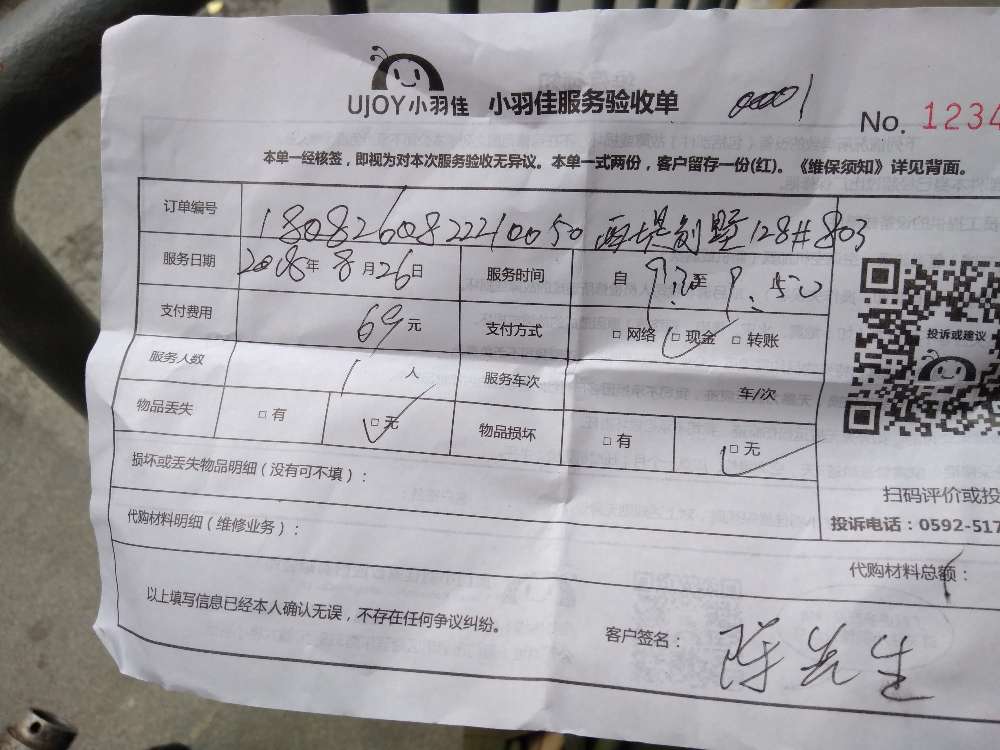 UJOY小羽佳 小羽佳服务验收单 00001
No. 1234
本单一经核签，即视为对本次服务验收无异议。本单一式两份，客户留存一份(红)。《维保须知》详见背面。
订单编号 1808260822210050 西堤别墅128#803
服务日期 2018年8月26日 服务时间 自9:20至9:50
支付费用 69元 支付方式 □网络 □现金 □转账
服务人数 1人 服务车次 车/次
物品丢失 □有 □无 物品损坏 □有 □无
投诉或建议
损坏或丢失物品明细（没有可不填）：
扫码评价或投
代购材料明细（维修业务）：
投诉电话：0592-517
代购材料总额：
以上填写信息已经本人确认无误，不存在任何争议纠纷。
客户签名：陈先生